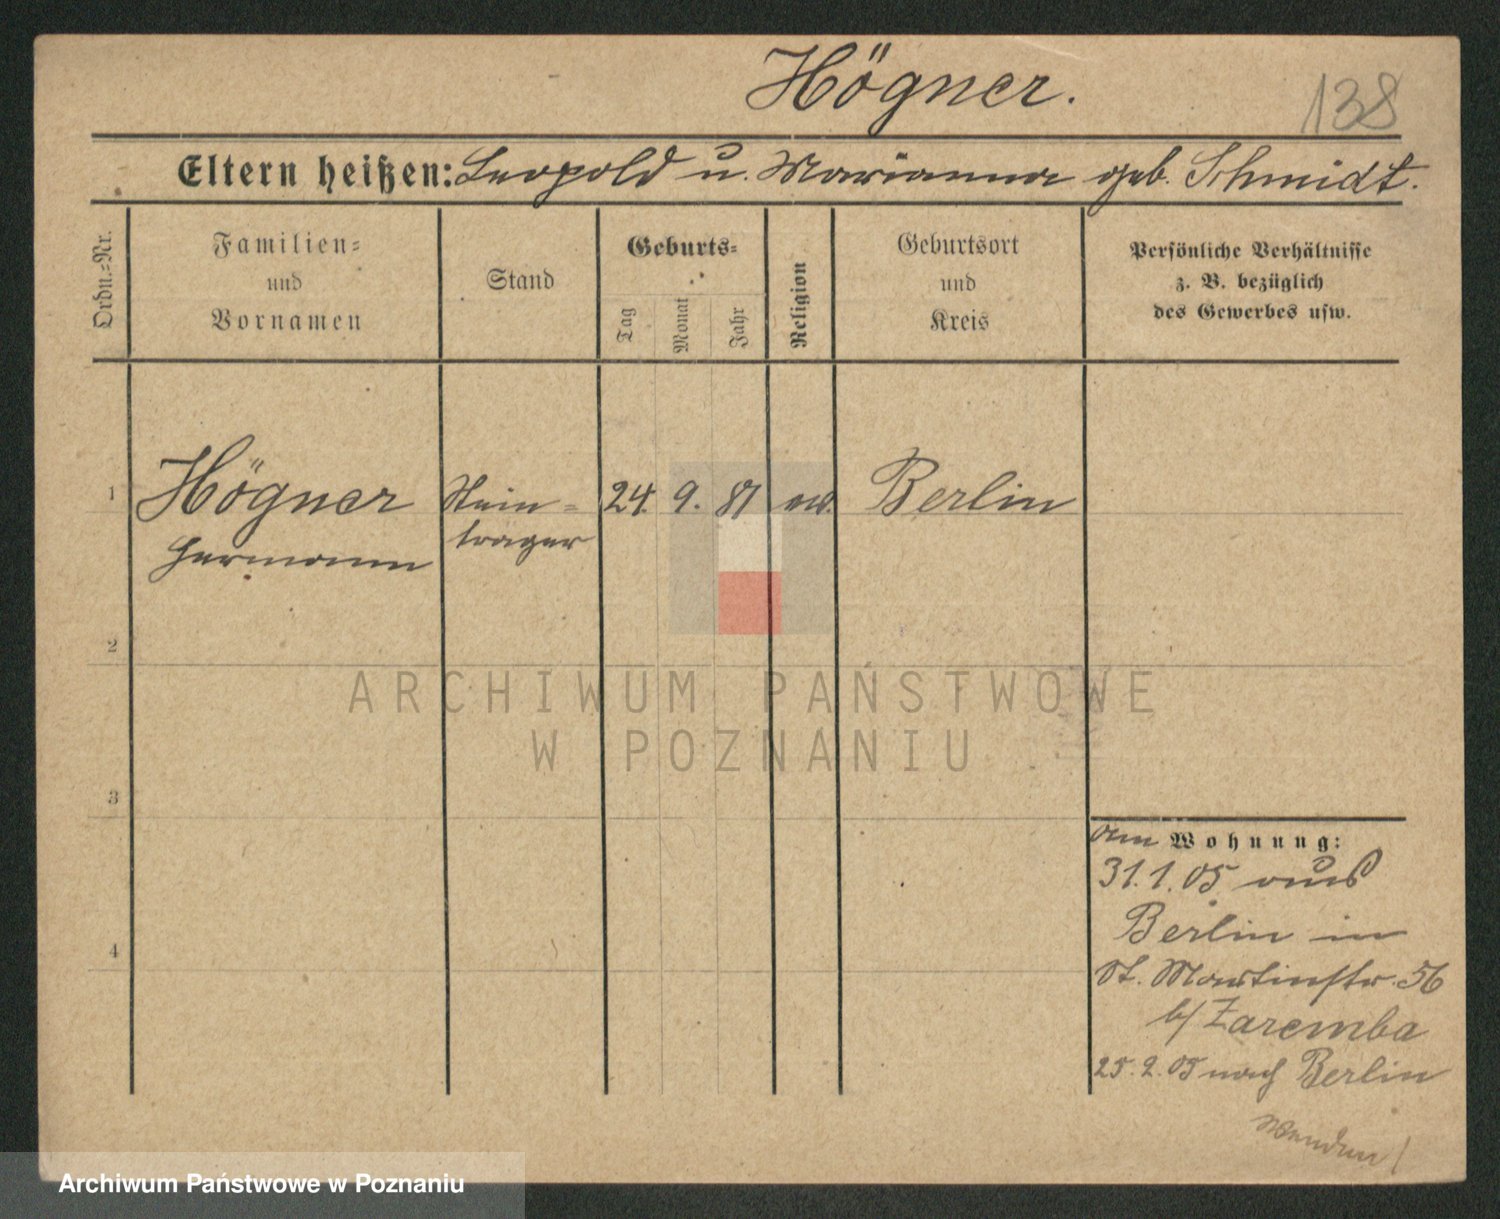 Högner.
138
Eltern heißen: Leopold u. Marianna geb. Schmidt.
Ordn.-Nr.
Familien-
und
Vornamen
Stand
Geburts-
Tag
Monat
Jahr
Religion
Geburtsort
und
Kreis
Persönliche Verhältnisse
z. B. bezüglich
des Gewerbes usw.
1 Högner Stein- 24. 9. 81 ev. Berlin
Hermann träger
2
3
4
am Wohnung:
31.1.05 aus
Berlin in
St. Martinstr. 56
b/ Zaremba
25.2.05 nach Berlin
Wenden!
ARCHIWUM PAŃSTWOWE
W POZNANIU
Archiwum Państwowe w Poznaniu